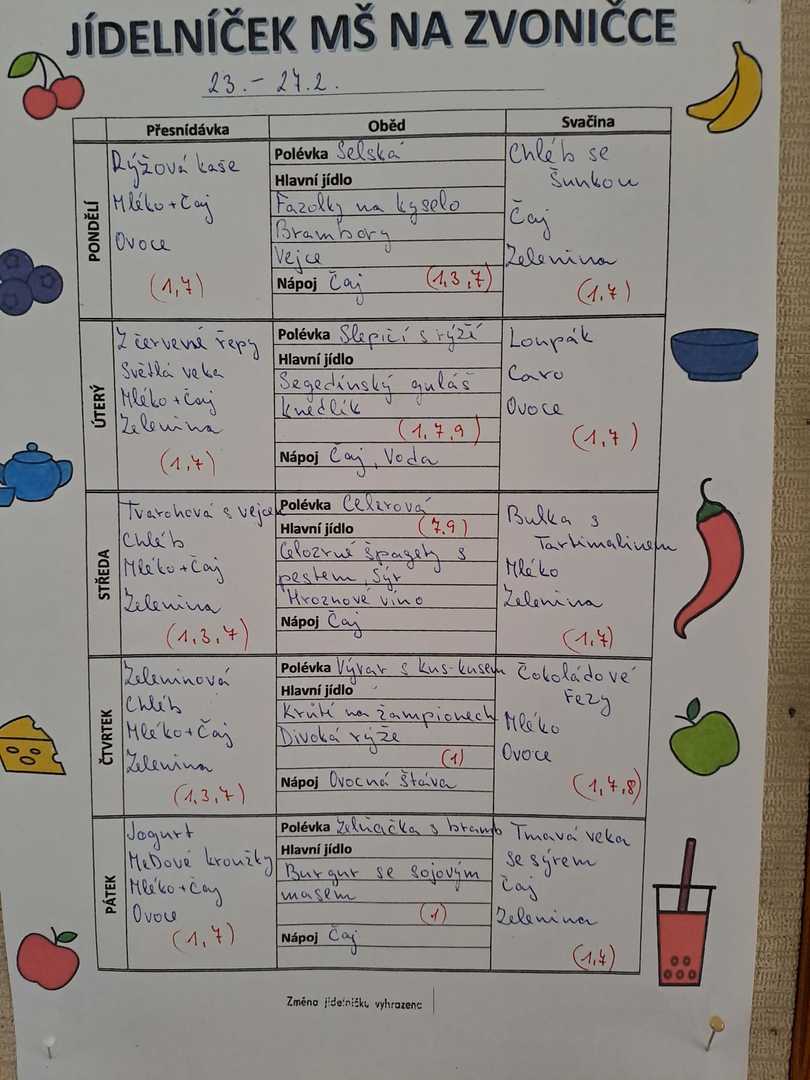 JÍDELNÍČEK MŠ NA ZVONIČCE
23. – 27.2.
Přesnídávka
Oběd
Svačina
PONDĚLÍ
Rýžová kaše
Mléko + Čaj
Ovoce
(1,7)
Polévka Selská
Hlavní jídlo
Fazolky na kyselo
Brambory
Vejce
Nápoj Čaj (1,3,7)
Chléb se
Šunkou
Čaj
Zelenina
(1,7)
ÚTERÝ
Z červené řepy
Světlá veka
Mléko + Čaj
Zelenina
(1,7)
Polévka Slepičí s rýží
Hlavní jídlo
Segedínský guláš
knedlík
(1,7,9)
Nápoj Čaj, Voda
Loupák
Caro
Ovoce
(1,7)
STŘEDA
Tvarohová s vejcem
Chléb
Mléko + Čaj
Zelenina
(1,3,7)
Polévka Celerová
Hlavní jídlo (7,9)
Celozrné špagety s
pestem, sýr
Hroznové víno
Nápoj Čaj
Bulka s
Tartimalinem
Mléko
Zelenina
(1,7)
ČTVRTEK
Zeleninová
Chléb
Mléko + Čaj
Zelenina
(1,3,7)
Polévka Vývar s kus-kusem
Hlavní jídlo
Krůtí na žampionech
Divoká rýže
(1)
Nápoj Ovocná šťáva
Čokoládové
řezy
Mléko
Ovoce
(1,7,8)
PÁTEK
Jogurt
MeDové kroužky
Mléko + Čaj
Ovoce
(1,7)
Polévka Zelňačka s bramb
Hlavní jídlo
Burgur se sojovým
masem
(1)
Nápoj Čaj
Tmavá veka
se sýrem
Čaj
Zelenina
(1,7)
Změna jídelníčku vyhrazena